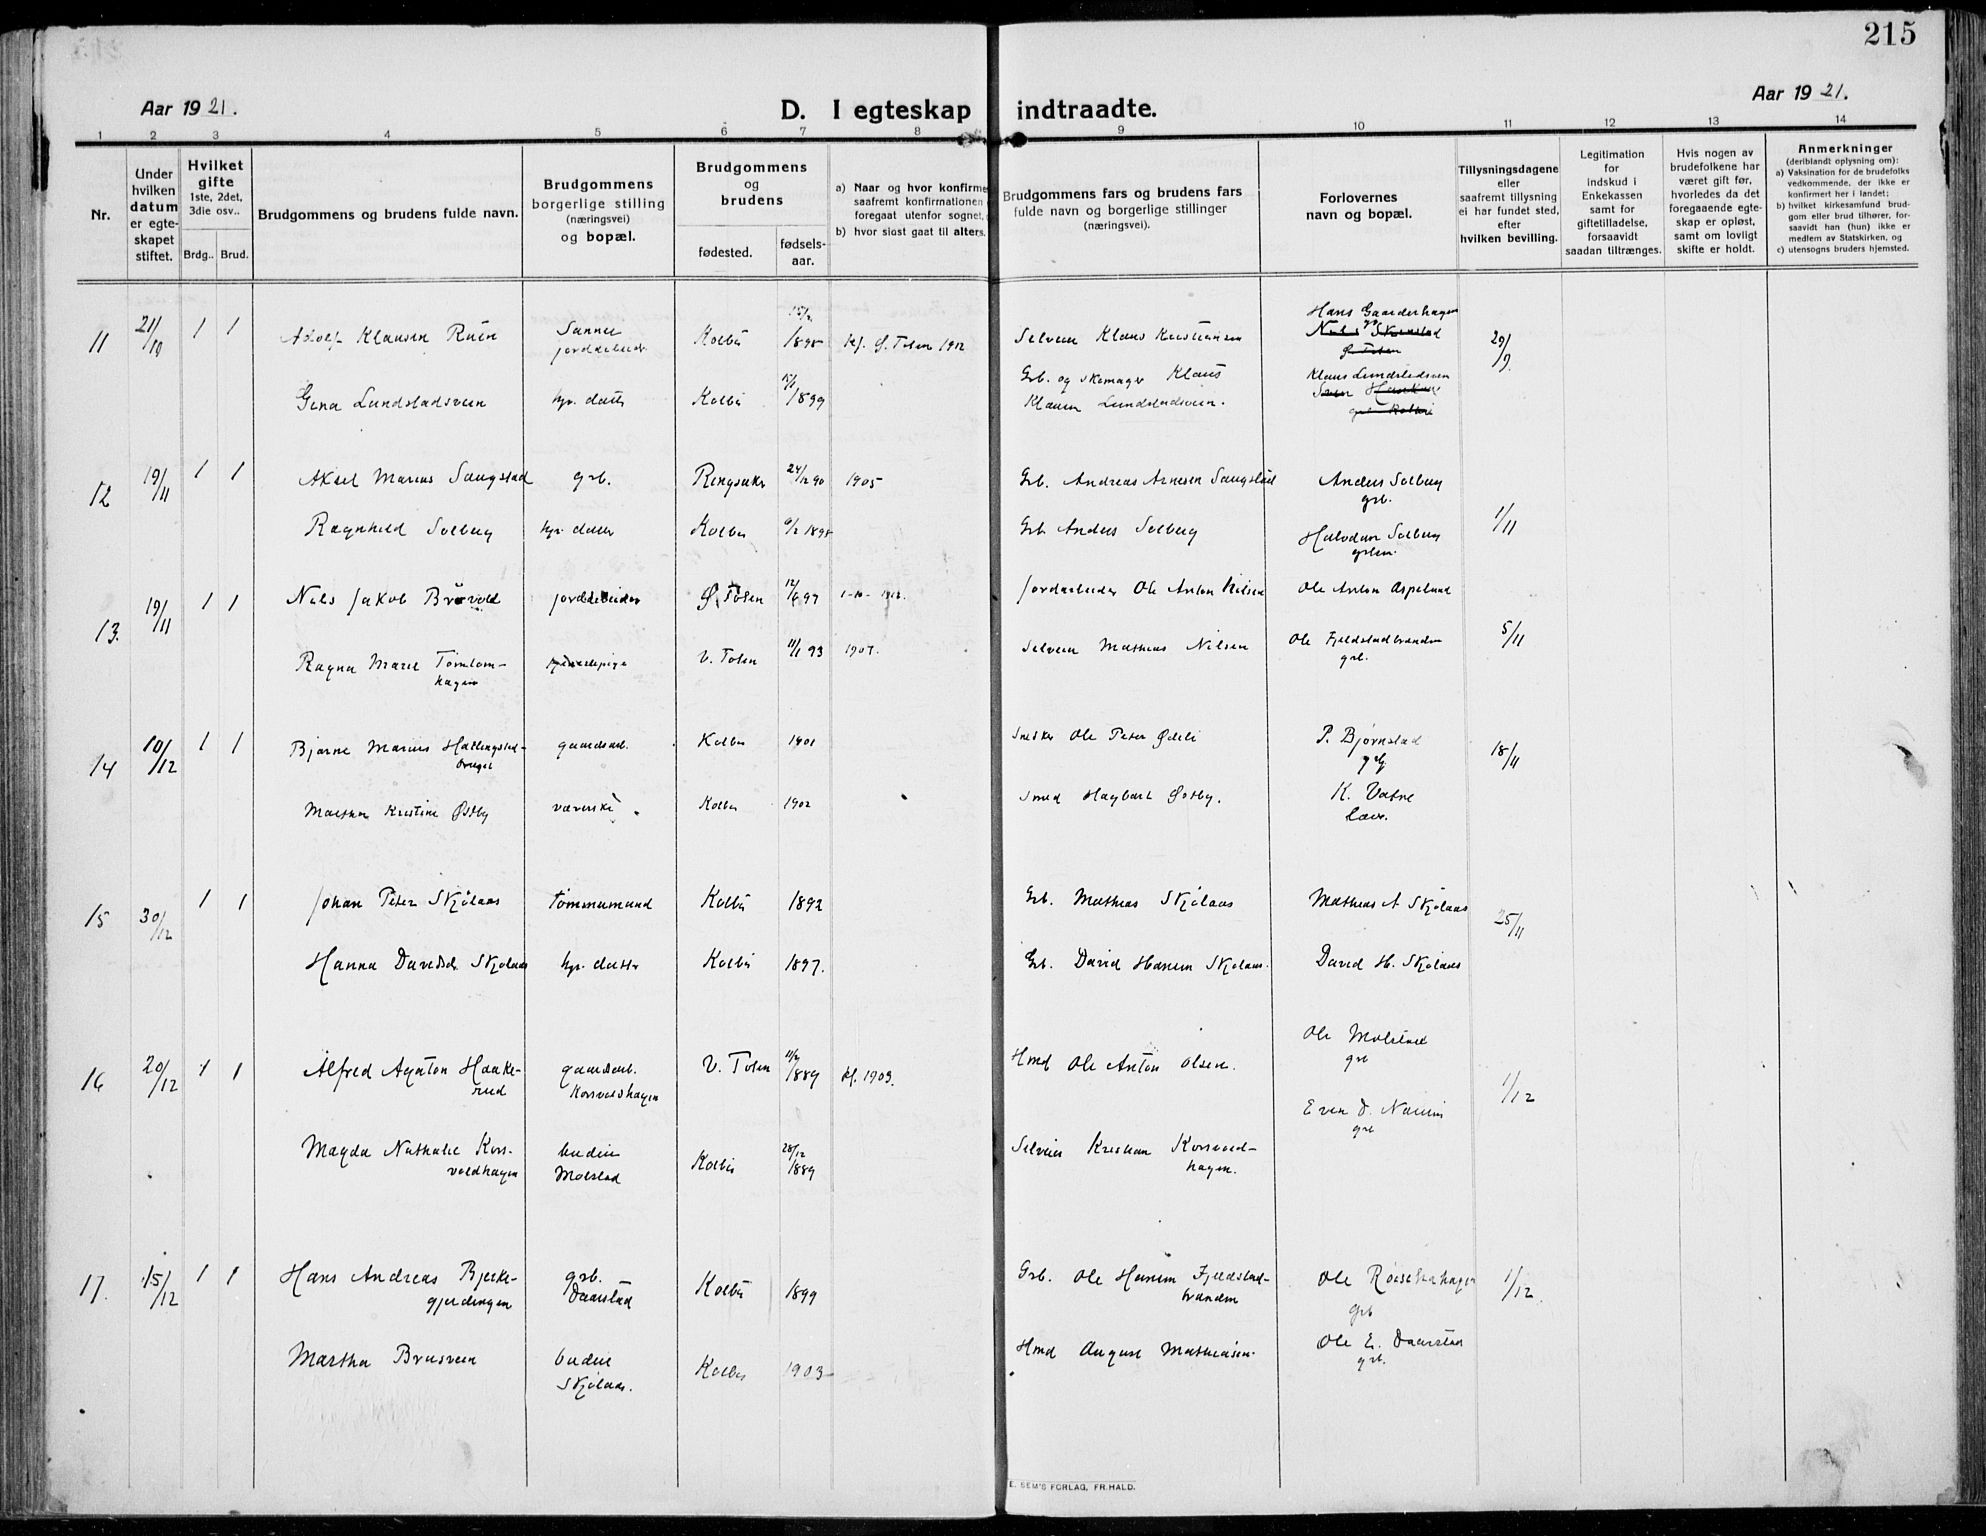 215
Aar 1921.
D. I egteskap indtraadte.
Aar 1921.
1 2 3 4 5 6 7 8 9 10 11 12 13 14
Nr.
Under hvilken datum er egteskapet stiftet.
Hvilket gifte
1ste, 2det, 3die osv..
Brdg.. Brud.
Brudgommens og brudens fulde navn.
Brudgommens borgerlige stilling (næringsvei) og bopæl.
Brudgommens og brudens
fødested.
fødselsaar.
a) Naar og hvor konfirme
saafremt konfirmationen
foregaat utenfor sognet,
b) hvor sidst gaat til alters.
Brudgommens fars og brudens fars
fulde navn og borgerlige stillinger
(næringsvei).
Forlovernes
navn og bopæl.
Tillysningsdagene
eller
saafremt tillysning
ei har fundet sted,
efter
hvilken bevilling.
Legitimation
for
indskud i
Enkekassen
samt for
giftetilladelse,
forsaavidt
saadan tiltrænges.
Hvis nogen av
brudefolkene har
været gift før,
hvorledes da det
foregaaende egteskap er opløst,
samt om lovligt
skifte er holdt.
Anmerkninger
(deriblandt oplysning om):
a) Vaksination for de brudefolks
vedkommende, der ikke er
konfirmert her i landet;
b) hvilket kirkesamfund brudgom eller brud tilhører, forsaavidt han (hun) ikke er
medlem av Statskirken, og
c) utensogns bruders hjemsted.
11 21/10 1 1 Adolf Klausen Ruen Sanne jordarbeider Kolbu 1895 kf. Ø. Toten 1912 Selveier Klaus Kristiansen Hans Gaarderhagen 29/9.
Gina Lundstadsveen gr. datter Kolbu 1899 Grb. og skomager Klaus Klausen Lundstadsveen. Klaus Lundstadsveen
12 19/11 1 1 Aksel Marius Saugstad grb. Ringsaker 24/12 90 1905 Grb. Andreas Arnesen Saugstad Anders Solberg grb. 1/11
Ragnhild Solberg gr. datter Kolbu 9/2 1898 Grb Anders Solberg Halvdan Solberg
13. 19/11 1 1 Nils Jakob Bråvold jordarbeider Ø. Toten 12/6 97 Jordarbeider Ole Anton Nilsen Ole Anton Aspelund 5/11
Ragna Marie Tømtomhagen V. Toten 11/1 93 1907. Selveier Mathias Nilsen Ole Fjeldstadbrænden grb.
14 10/12 1 1 Bjarne Marius Hallingstadbruget gaardsarb. Kolbu 1901 Snekker Ole Peter Ødeli P. Bjørnstad 18/11
Martha Kristine Østby væverske Kolbu 1902 Smed Hagbart Østby. K. Vatne Lær.
15 30/12 1 1 Johan Peter Skjølaas tømmermand Kolbu 1892 Grb. Mathias Skjølaas Mathias A Skjølaas 25/11
Hanna Davidsdr. Skjølaas gr. datter Kolbu 1897. Grb. David Hansen Skjølaas. David H. Skjølaas
16 20/12 1 1 Alfred Agaton Haakerud gaardarb. Korsvoldhagen V. Toten 1889 kf. 1903. Hmd Ole Anton Olsen. Ole Molstad grb 1/12
Magda Nathalie Korsvoldhagen budeie Molstad Kolbu 28/12 1889 Selveier Kristian Korsvoldhagen. Even D. Næsseth grb
17. 15/12 1 1 Hans Andreas Bjerkegjerdingen grb. Daarstad Kolbu 1899 Grb. Ole Hansen Fjeldstadbrænden Ole grb 1/12.
Martha Brusveen budeie Skjølaas. Kolbu 1903 Hmd August Mathiasen. Ole E. Daarstad grb.
E. SEM'S FORLAG, FR.HALD.